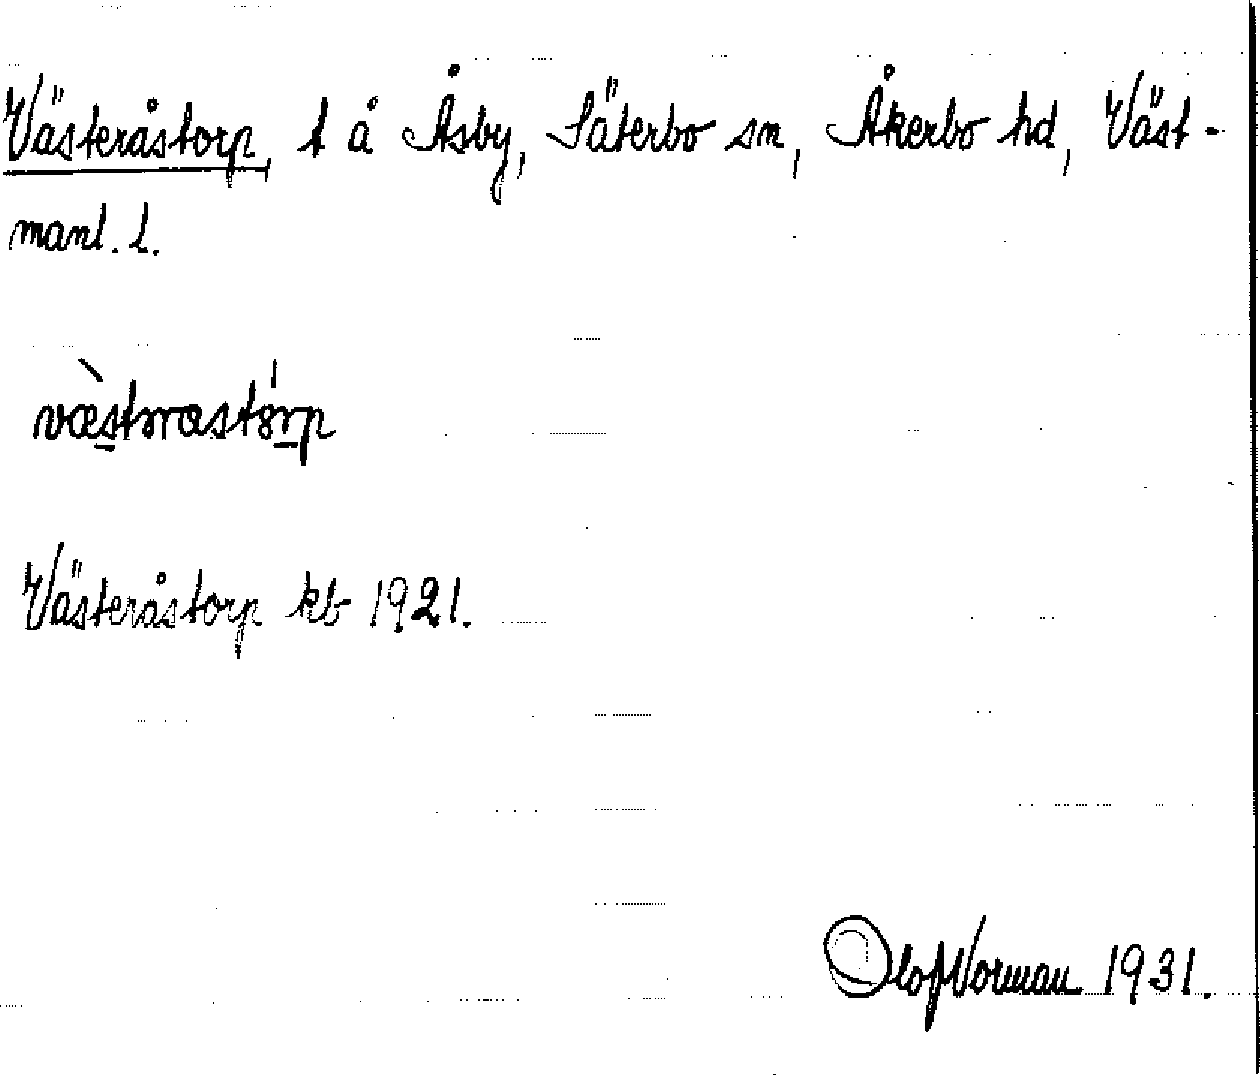 Västeråstorp, t å Åsby, Säterbo sn, Åkerbo hd, Väst-
manl. l.
væ̀stərastórp
Västeråstorp kb 1921.
Olof Norman 1931.